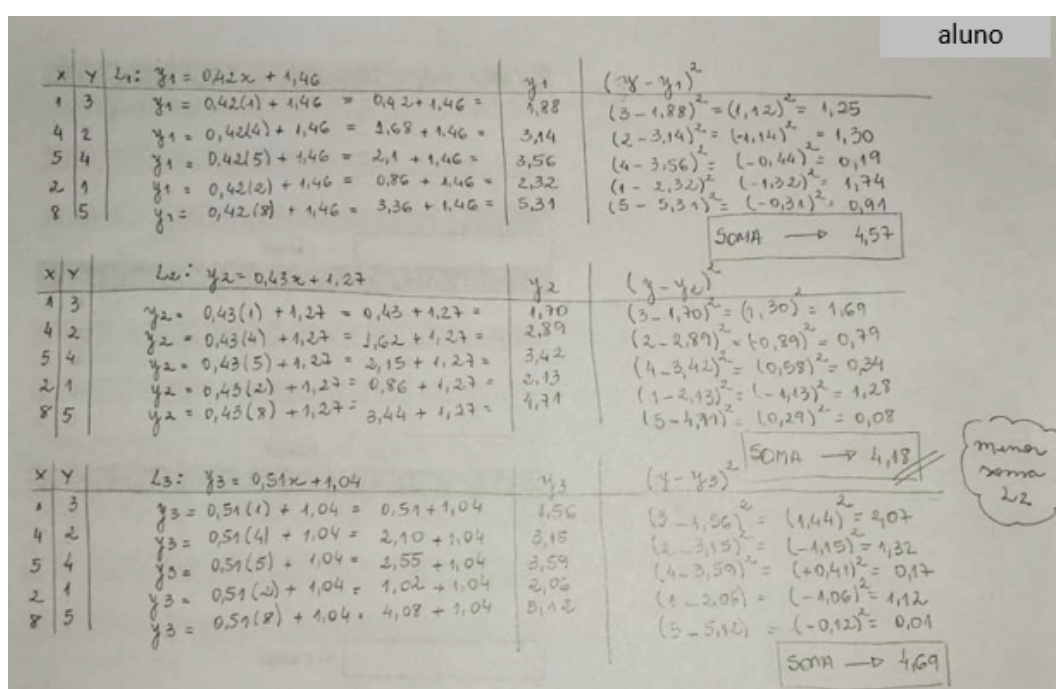 aluno
X Y L1: y1 = 0,42x + 1,46 y1 (y - y1)²
1 3 y1 = 0,42(1) + 1,46 = 0,42 + 1,46 = 1,88 (3 - 1,88)² = (1,12)² = 1,25
4 2 y1 = 0,42(4) + 1,46 = 1,68 + 1,46 = 3,14 (2 - 3,14)² = (-1,14)² = 1,30
5 4 y1 = 0,42(5) + 1,46 = 2,1 + 1,46 = 3,56 (4 - 3,56)² = (-0,44)² = 0,19
2 1 y1 = 0,42(2) + 1,46 = 0,86 + 1,46 = 2,32 (1 - 2,32)² = (-1,32)² = 1,74
8 5 y1 = 0,42(8) + 1,46 = 3,36 + 1,46 = 5,31 (5 - 5,31)² = (-0,31)² = 0,91
SOMA → 4,57
X Y L2: y2 = 0,43x + 1,27 y2 (y - y2)²
1 3 y2 = 0,43(1) + 1,27 = 0,43 + 1,27 = 1,70 (3 - 1,70)² = (1,30)² = 1,69
4 2 y2 = 0,43(4) + 1,27 = 1,62 + 1,27 = 2,89 (2 - 2,89)² = (-0,89)² = 0,79
5 4 y2 = 0,43(5) + 1,27 = 2,15 + 1,27 = 3,42 (4 - 3,42)² = (0,58)² = 0,34
2 1 y2 = 0,43(2) + 1,27 = 0,86 + 1,27 = 2,13 (1 - 2,13)² = (-1,13)² = 1,28
8 5 y2 = 0,43(8) + 1,27 = 3,44 + 1,27 = 4,71 (5 - 4,71)² = (0,29)² = 0,08
SOMA → 4,18
menor
soma
L2
X Y L3: y3 = 0,51x + 1,04 y3 (y - y3)²
1 3 y3 = 0,51(1) + 1,04 = 0,51 + 1,04 1,56 (3 - 1,56)² = (1,44)² = 2,07
4 2 y3 = 0,51(4) + 1,04 = 2,10 + 1,04 3,15 (2 - 3,15)² = (-1,15)² = 1,32
5 4 y3 = 0,51(5) + 1,04 = 2,55 + 1,04 3,59 (4 - 3,59)² = (+0,41)² = 0,17
2 1 y3 = 0,51(2) + 1,04 = 1,02 + 1,04 2,06 (1 - 2,06) = (-1,06)² = 1,12
8 5 y3 = 0,51(8) + 1,04 = 4,08 + 1,04 5,12 (5 - 5,12) = (-0,12)² = 0,01
SOMA → 4,69